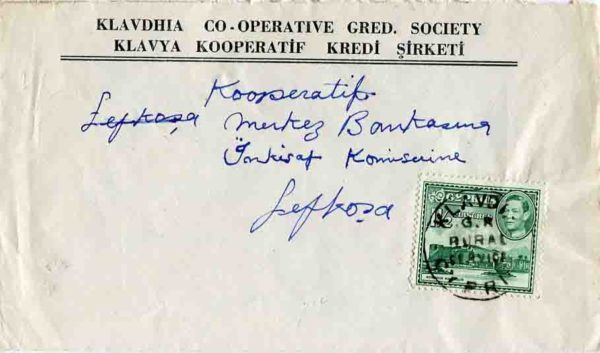 KLAVDHIA CO-OPERATIVE GRED. SOCIETY
KLAVYA KOOPERATİF KREDİ ŞİRKETİ
Kooperatif
Lefkoşa Merkez Bankasına
İnkişaf Komiserine
Lefkoşa
CYPRUS
KLAVD
G.R
RURAL
SERVICE
CYPR